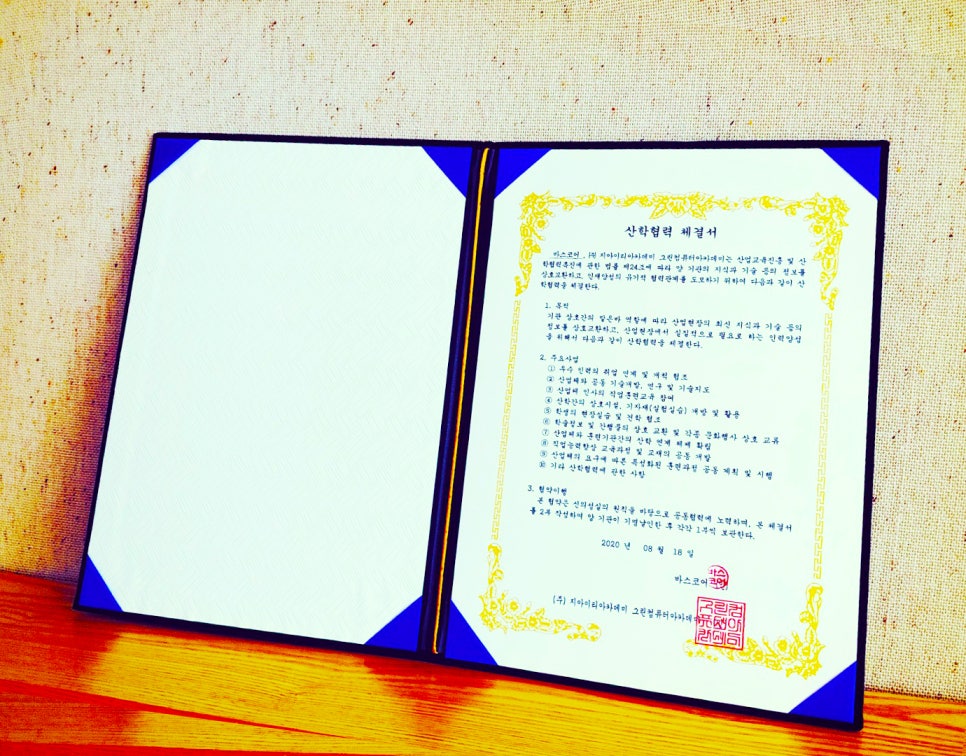 산학협력 체결서
바스코어, (주)지아이티아카데미 그린컴퓨터아카데미는 산업교육진흥 및 산
학협력촉진에 관한 법률 제24조에 따라 양 기관의 지식과 기술 등의 정보를
상호교환하고, 인재양성의 유기적 협력관계를 도모하기 위하여 다음과 같이 산
학협력을 체결한다.
1. 목적
기관 상호간의 역할에 따라 산업현장의 최신 지식과 기술 등의
정보를 상호교환하고, 산업현장에서 실질적으로 필요로 하는 인력양성
을 위해서 다음과 같이 산학협력을 체결한다.
2. 주요사업
① 우수 인력의 취업 연계 및 개척 협조
② 산업체와 공동 기술개발, 연구 및 기술지도
③ 산업체 인사의 직업훈련교육 참여
④ 산학간의 상호시설, 기자재(실험실습) 개방 및 활용
⑤ 학생의 현장실습 및 견학 협조
⑥ 학술정보 및 간행물의 상호 교환 및 각종 문화행사 상호 교류
⑦ 산업체와 훈련기관간의 산학 연계 체제 확립
⑧ 직업능력향상 교육과정 및 교재의 공동 개발
⑨ 산업체의 요구에 따른 특성화된 훈련과정 공동 계획 및 시행
⑩ 기타 산학협력에 관한 사항
3. 협약이행
본 협약은 신의성실의 원칙을 바탕으로 공동협력에 노력하며, 본 체결서
를 2부 작성하여 양 기관이 기명날인한 후 각각 1부씩 보관한다.
2020 년 08 월 18 일
바스코어
(주) 지아이티아카데미 그린컴퓨터아카데미